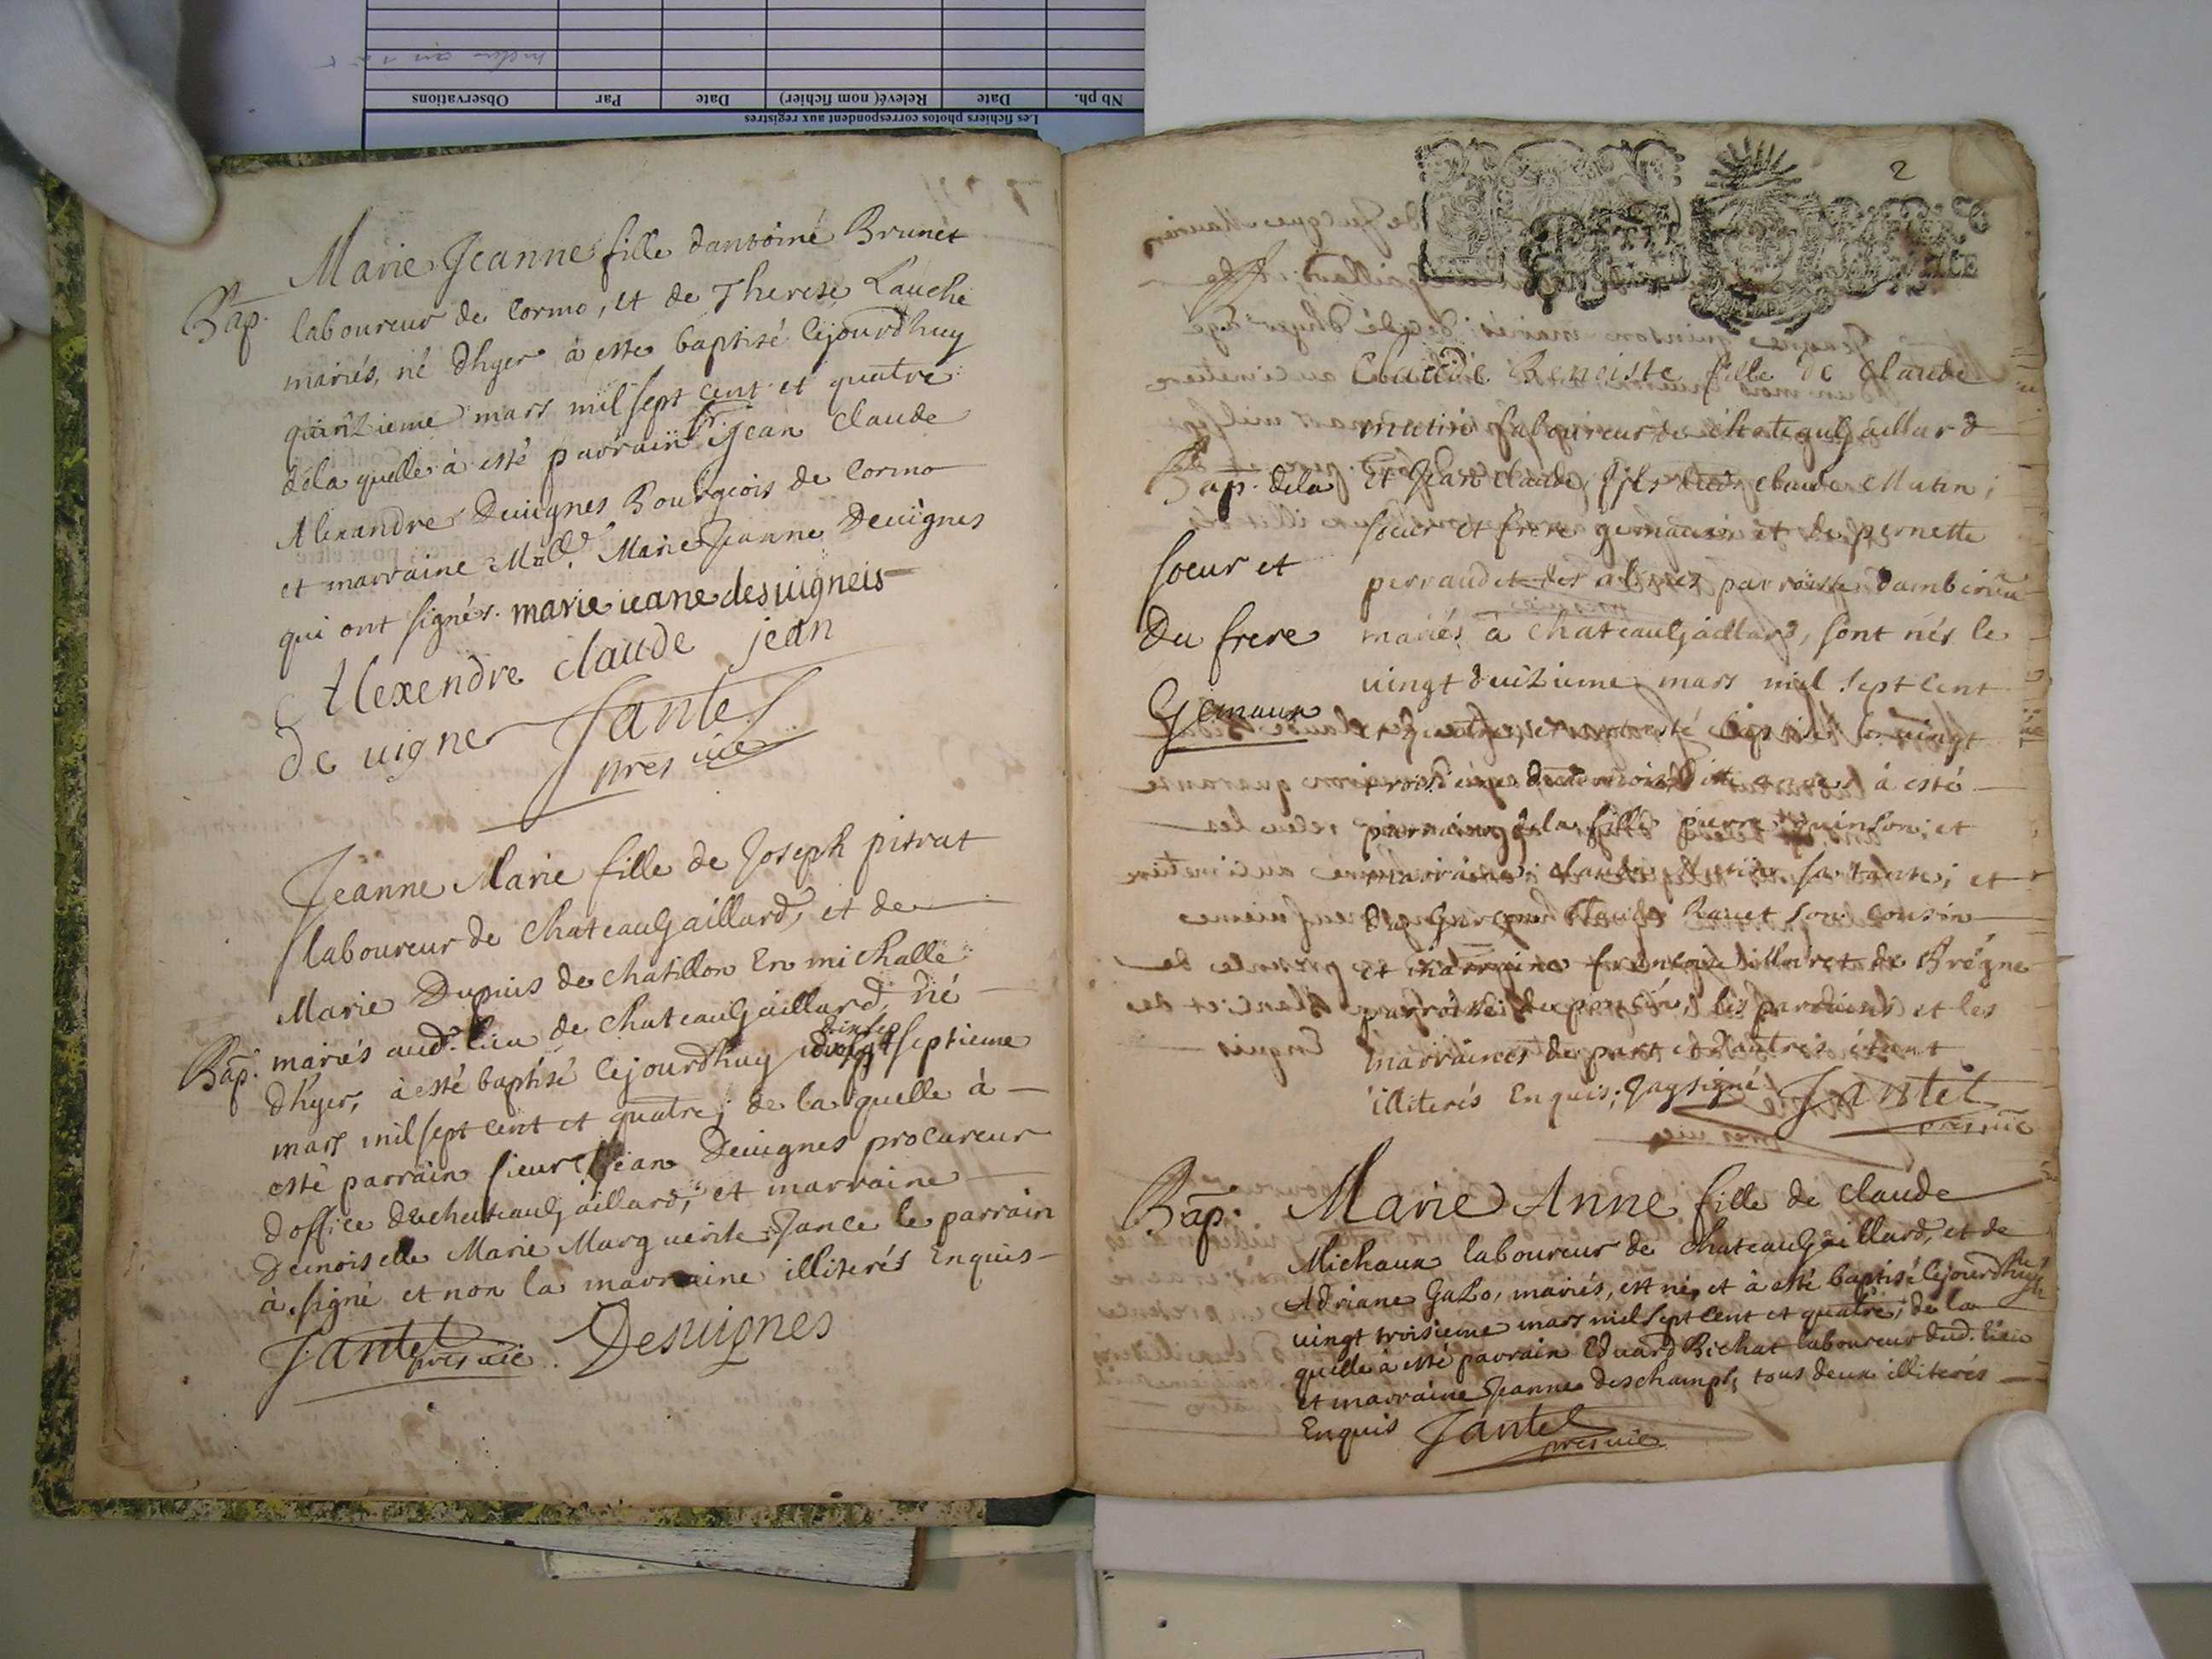 Les fichiers photos correspondent aux registres
Nb ph. Date Relevé( nom fichier) Date Par Observations
Bap.
Marie Jeanne fille dantoine Brunet
laboureur de Cormo, et de Therese Lauche
mariés, né dhyer à esté baptisé Cejourdhuy
quinzieme mars mil sept cent et quatre
dela quelle à esté parrain Sr. Jean Claude
Alexandre Deuignes Bourgeois de Cormo
et marraine Mad. Marie Jeanne Deuignes
qui ont signés. marie ieane desuigneis
Alexendre claude jean
de uigne Jantet
pres uic
Jeanne Marie fille de Joseph pitrat
laboureur de Chateaugaillard, et de
Marie Dupuis de chatillon En michalle
Bap. mariés aud. lieu de Chateaugaillard, né
dhyer, à esté baptisé Cejourdhuy septieme
mars mil sept cent et quatre; de la quelle à
esté parrain sieur Jean Deuignes procureur
doffice de Chateaugaillard, et marraine
Demoiselle Marie Marguerite Jance le parrain
à signé et non la marraine illiterés Enquis
Jantet pres uic. Desuignes
2
Claude Benoiste fille de Claude
mutin laboureur de chateaugaillard
Bap. dela et Jean claude fils dud. claude Mutin;
soeur et soeur et frere gemaux et de pernette
perraud et des alimes parroisse dambeircu
Du frere mariés à chateaugaillard, sont nés le
uingt deuzieme mars mil sept cent
Gemaux et quatre, et ont esté baptisé le uingt
troisieme à esté
parrain de la fille pierre quinson; et
marraine claudine sa tante; et
Claude Rauet son cousin
et marraine francoise de
parroisse de les parrains et les
marraines de part et dautres étant
illiterés Enquis; Jay signé Jantet
pres uic
Bap. Marie Anne fille de Claude
Michaux laboureur de Chateaugaillard, et de
Adriane Gabo, mariés, est né, et à esté baptisé Cejourdhuy
uingt troisieme mars mil sept cent et quatre; de la
quelle à esté parrain Eduard Bichat laboureur dud. lieu
et marraine Jeanne deschamps, tous deux illiterés
Enquis Jantet
pres uic